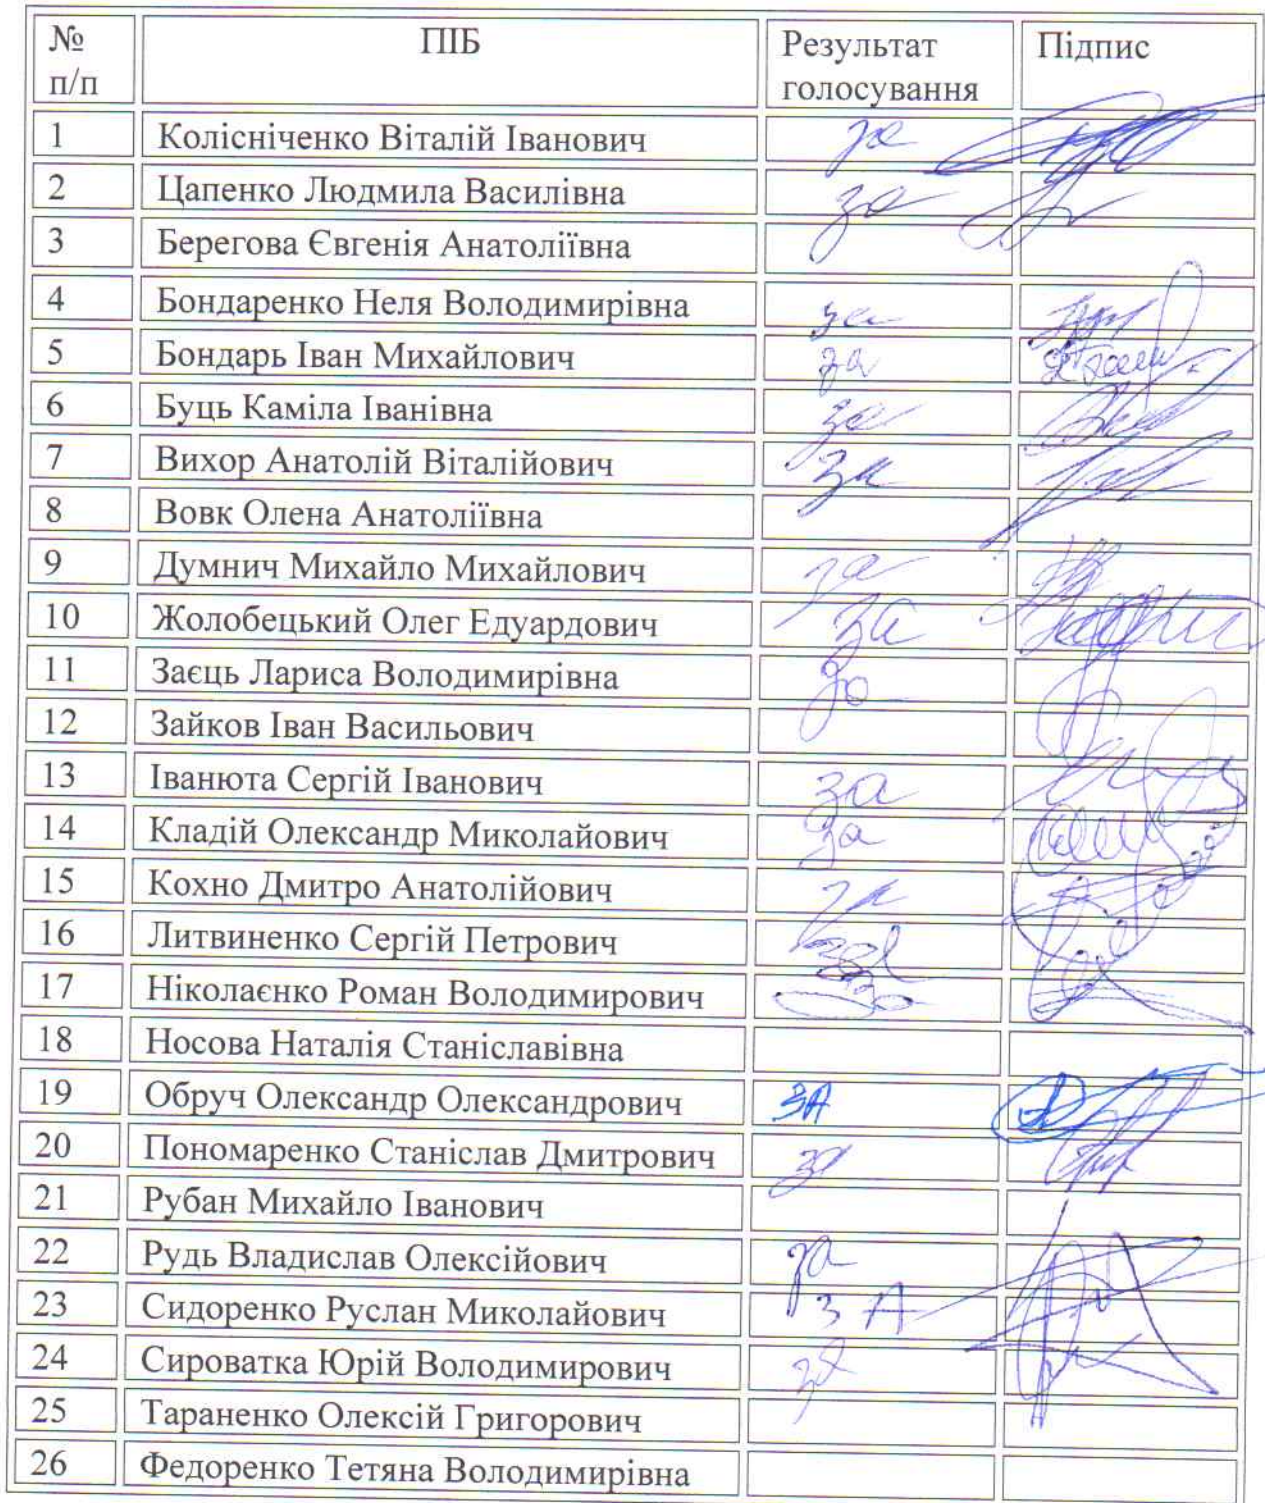 № п/п ПІБ Результат голосування Підпис
1 Колісніченко Віталій Іванович за
2 Цапенко Людмила Василівна за
3 Берегова Євгенія Анатоліївна
4 Бондаренко Неля Володимирівна за
5 Бондарь Іван Михайлович за
6 Буць Каміла Іванівна за
7 Вихор Анатолій Віталійович за
8 Вовк Олена Анатоліївна
9 Думнич Михайло Михайлович за
10 Жолобецький Олег Едуардович за
11 Заєць Лариса Володимирівна за
12 Зайков Іван Васильович
13 Іванюта Сергій Іванович за
14 Кладій Олександр Миколайович за
15 Кохно Дмитро Анатолійович за
16 Литвиненко Сергій Петрович
17 Ніколаєнко Роман Володимирович
18 Носова Наталія Станіславівна
19 Обруч Олександр Олександрович ЗА
20 Пономаренко Станіслав Дмитрович за
21 Рубан Михайло Іванович
22 Рудь Владислав Олексійович за
23 Сидоренко Руслан Миколайович З А
24 Сироватка Юрій Володимирович за
25 Тараненко Олексій Григорович
26 Федоренко Тетяна Володимирівна